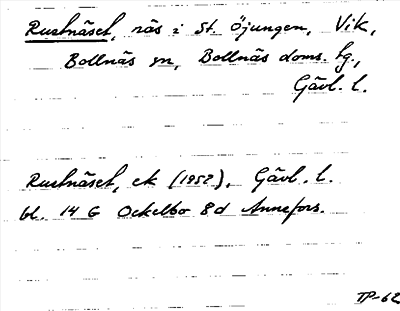 Rustnäset, näs i St. Öjungen, Vik,
Bollnäs sn, Bollnäs doms. tg.,
Gävl. l.
Rustnäset, ek (1952), Gävl. l.
bl. 14 G Ockelbo 8d Annefors.
TP-62